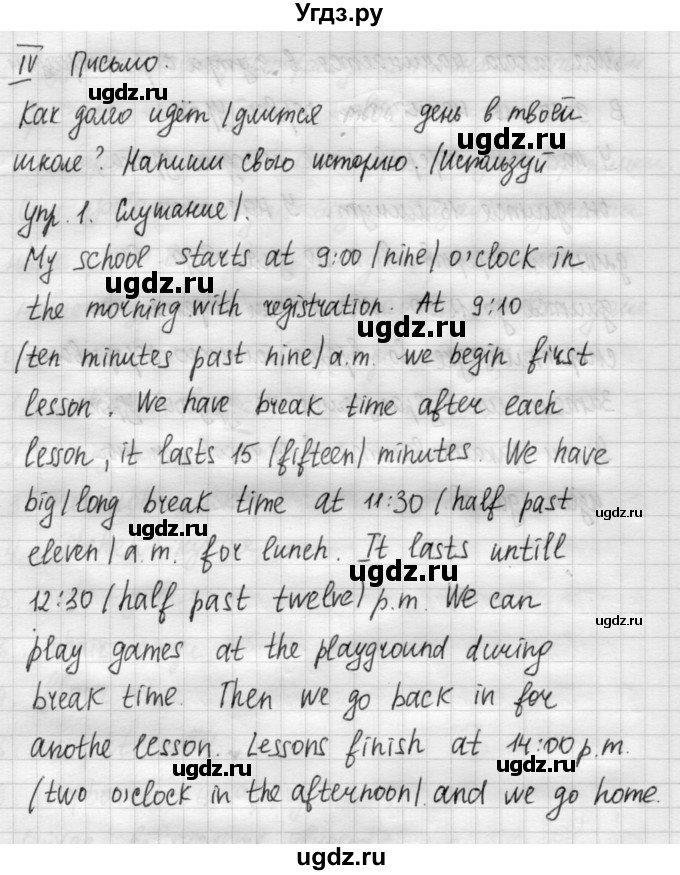 Угдз.ру
IV Письмо.
ugdz.ru
Как долго идёт /длится день в твоей
ugdz.ru
школе? Напиши свою историю. /Используй
упр. 1. Слушание/.
My school starts at 9:00 /nine/ o'clock in
ugdz.ru
the morning with registration. At 9:10
ugdz.ru
/ten minutes past nine/ a.m. we begin first
lesson. We have break time after each
lesson, it lasts 15 /fifteen/ minutes. We have
big/long break time at 11:30 /half past
ugdz.ru
ugdz.ru
eleven/ a.m. for lunch. It lasts untill
ugdz.ru
12:30 /half past twelve/ p.m. We can
ugdz.ru
play games at the playground during
break time. Then we go back in for
anothe lesson. Lessons finish at 14:00 p.m.
ugdz.ru
ugdz.ru
/two o'clock in the afternoon/. and we go home.
ugdz.ru